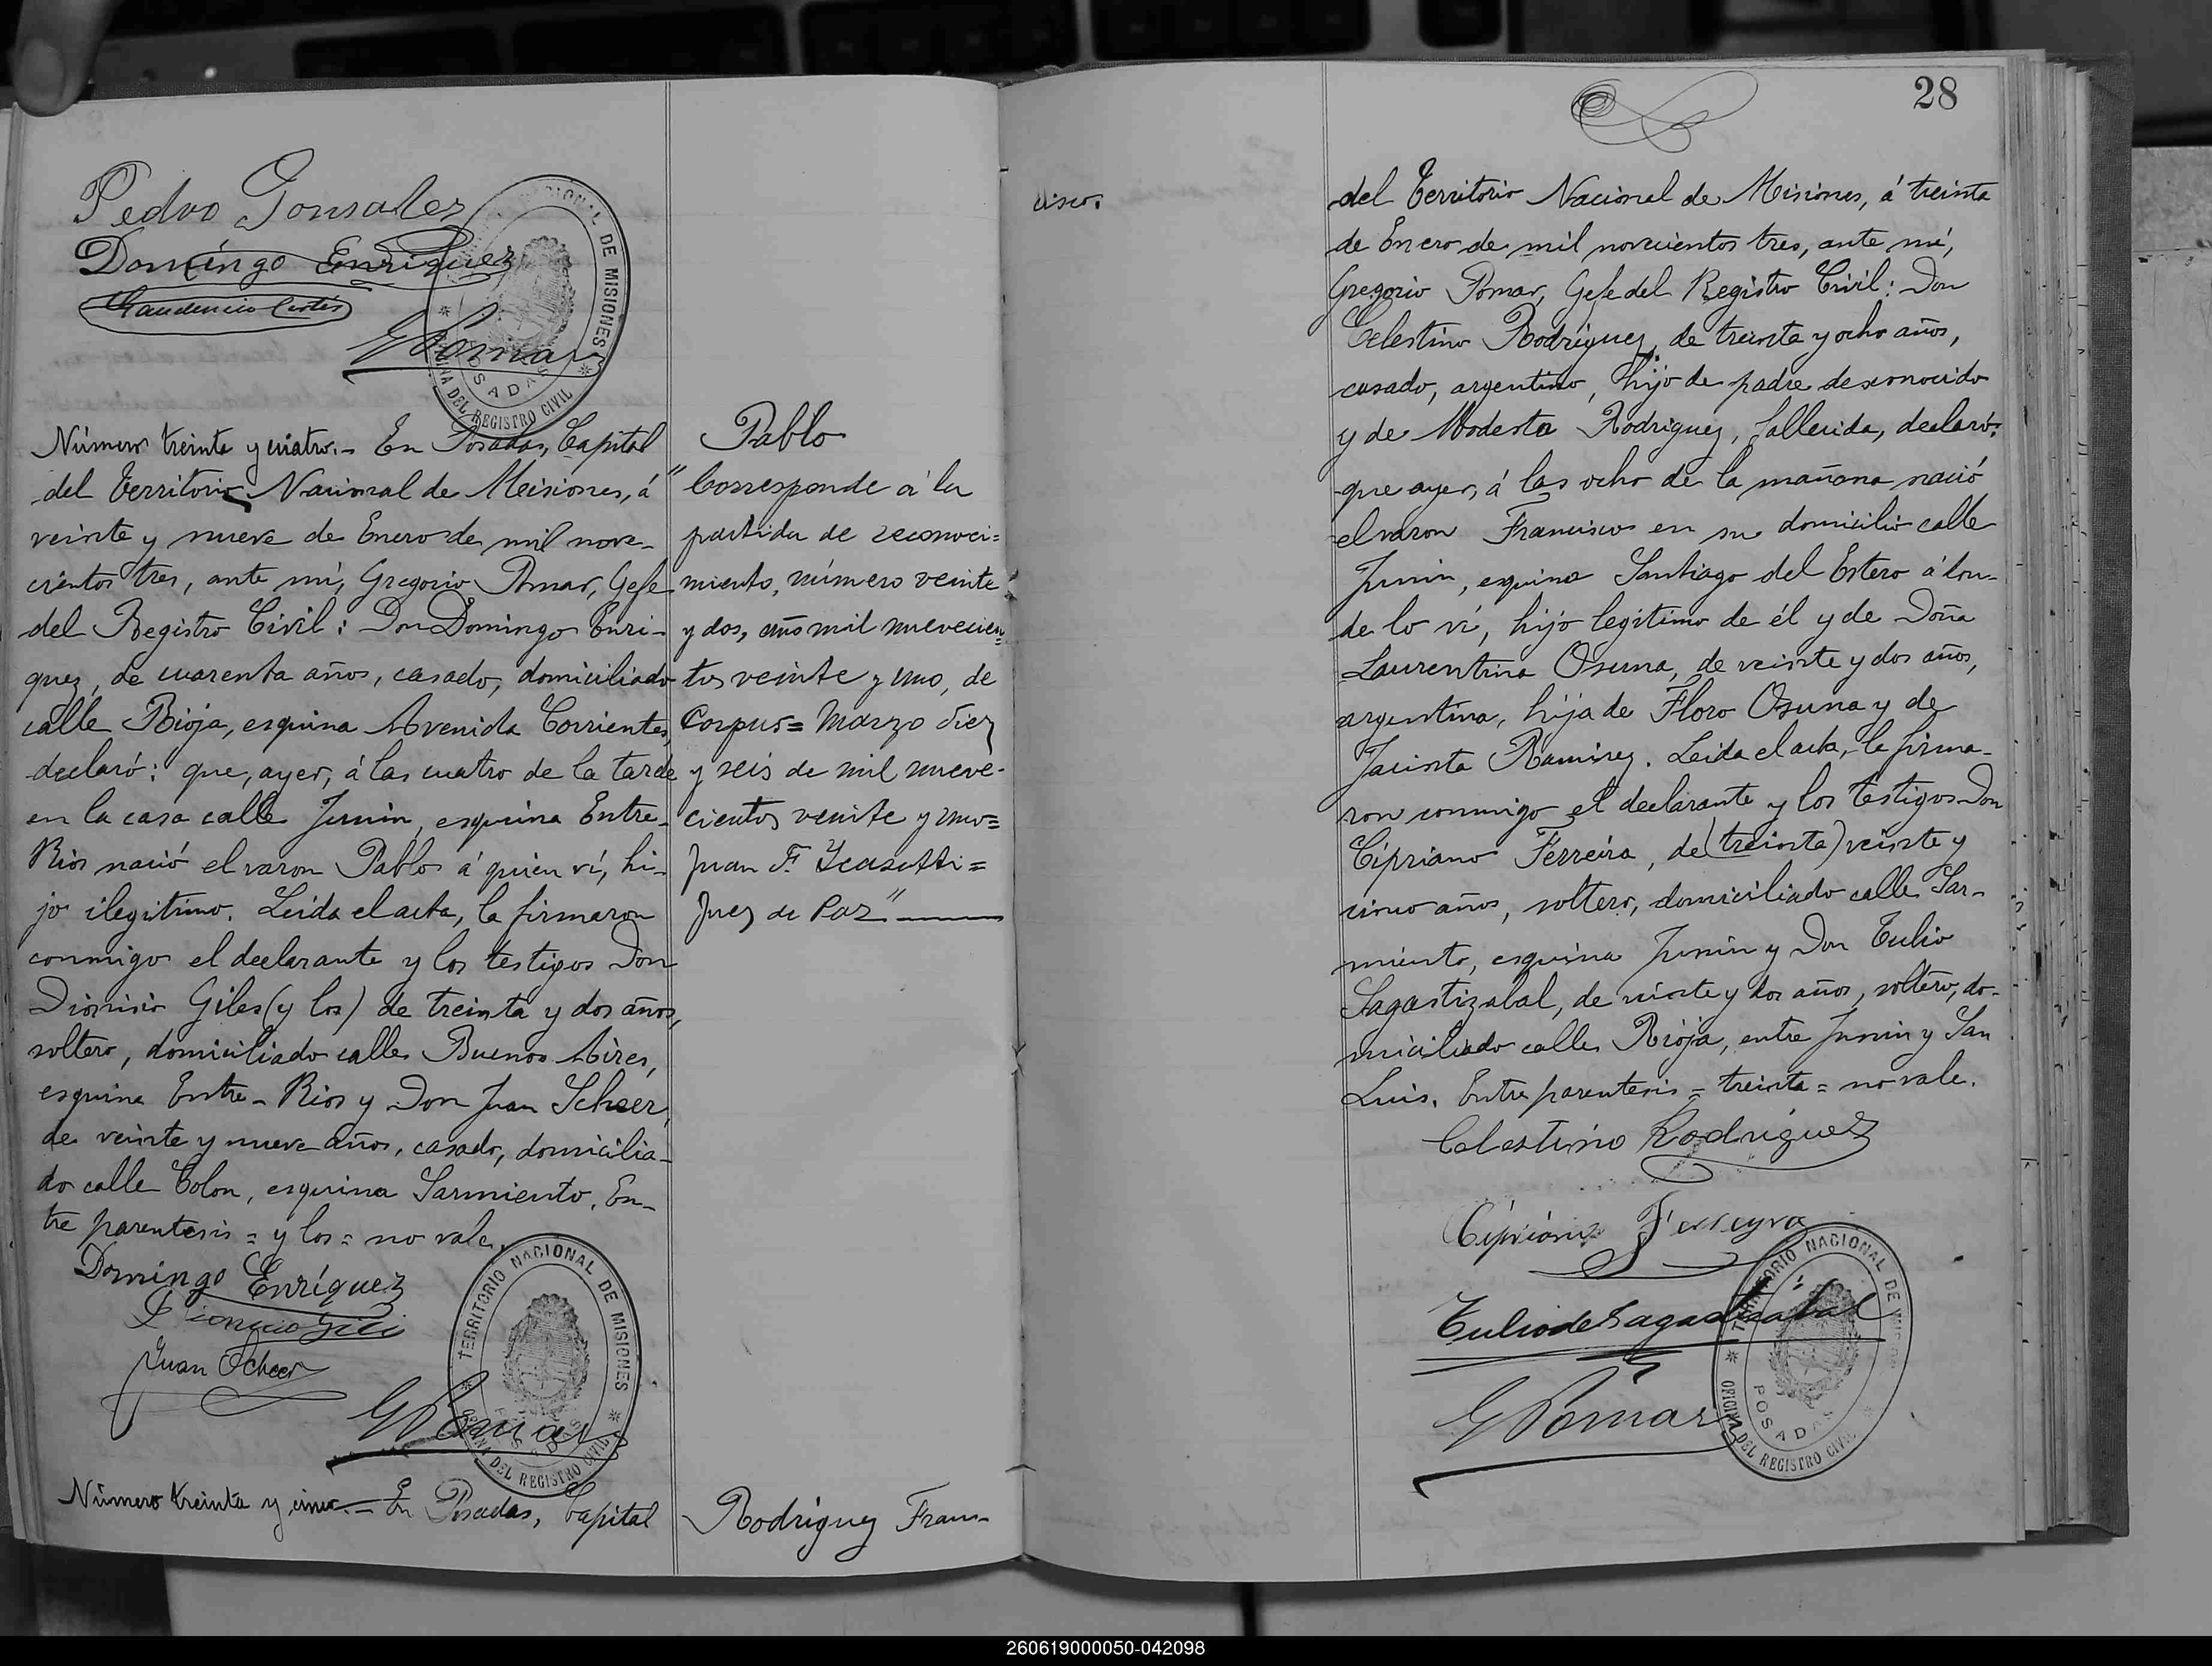 Pedro Gonsalez
Domíngo Enríquez
Gaudencio Cortés
GPomar
TERRITORIO NACIONAL DE MISIONES
POSADAS
OFICINA DEL REGISTRO CIVIL
Número treinta y cuatro.- En Posadas, Capital
del Territorio Nacional de Misiones, á
veinte y nueve de Enero de mil nove-
cientos tres, ante mí, Gregorio Pomar, Gefe
del Registro Civil: Don Domingo Enri-
quez, de cuarenta años, casado, domiciliado
calle Rioja, esquina Avenida Corrientes,
declaró: que, ayer, á las cuatro de la tarde
en la casa calle Junin, esquina Entre-
Rios nació el varon Pablo á quien ví, hi-
jo ilegitimo. Leida el acta, la firmaron
conmigo el declarante y los testigos Don
Dionisio Giles (y los) de treinta y dos años,
soltero, domiciliado calle Buenos Aires,
esquina Entre-Rios y Don Juan Scheer,
de veinte y nueve años, casado, domicilia-
do calle Colon, esquina Sarmiento. En-
tre parentesis = y los = no vale.
Domingo Enríquez
Dionicio Gili
Juan Scheer
GPomar
TERRITORIO NACIONAL DE MISIONES
POSADAS
OFICINA DEL REGISTRO CIVIL
Número treinta y cinco.- En Posadas, Capital
Pablo
"Corresponde á la
partida de reconoci=
miento, número veinte
y dos, año mil nuevecien=
tos veinte y uno, de
Corpus= Marzo diez
y seis de mil nueve-
cientos veinte y uno=
Juan F.
Juez de Paz"
Rodriguez Fran-
cisco.
28
del Territorio Nacional de Misiones, á treinta
de Enero de mil novecientos tres, ante mí,
Gregorio Pomar, Gefe del Registro Civil: Don
Celestino Rodriguez, de treinta y ocho años,
casado, argentino, hijo de padre desconocido
y de Modesta Rodriguez, fallecida, declaró:
que ayer, á las ocho de la mañana nació
el varon Francisco en su domicilio calle
Junin, esquina Santiago del Estero á don-
de lo ví, hijo legitimo de él y de Doña
Laurentina Osuna, de veinte y dos años,
argentina, hija de Floro Osuna y de
Jacinta Ramirez. Leida el acta, la firma-
ron conmigo el declarante y los testigos Don
Cipriano Ferreira, de (treinta) veinte y
cinco años, soltero, domiciliado calle Sar-
miento, esquina Junin y Don Tulio
Sagastizabal, de veinte y dos años, soltero, do-
miciliado calle Rioja, entre Junin y San
Luis. Entre parentesis = treinta = no vale.
Celestino Rodriguez
Cipriano Ferreyra
Tulio de Sagastizabal
GPomar
TERRITORIO NACIONAL DE MISIONES
POSADAS
OFICINA DEL REGISTRO CIVIL
260619000050-042098